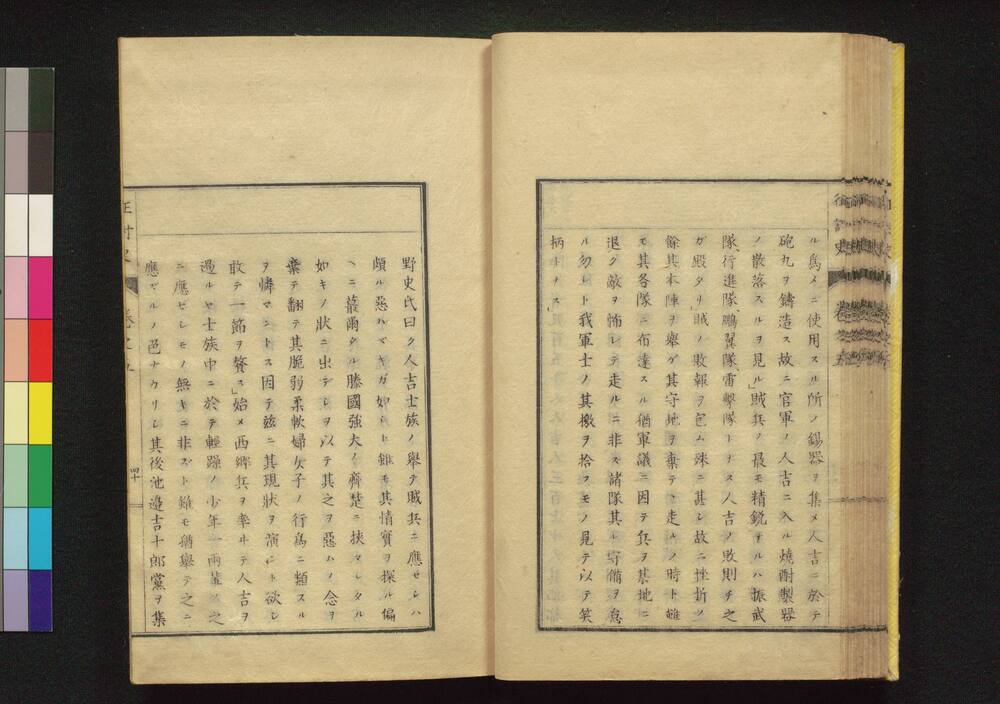 ル爲メニ使用スル所ノ錫器ヲ集メ人吉ニ於テ
砲丸ヲ鑄造ス故ニ官軍ノ人吉ニ入ル燒酎製器
ノ散落スルヲ見ル」賊兵ノ最モ精鋭ナルハ振武
隊、行進隊、鵬翼隊、雷擊隊トナス人吉ノ敗則チ之
ガ殿タリ」賊ノ敗報ヲ包ム殊ニ甚シ故ニ挫折ノ
餘其本陣ヲ擧ゲ其守地ヲ棄テヽ走ルノ時ト雖
モ其各隊ニ布達スル猶軍議ニ因テ兵ヲ某地ニ
退ク敵ヲ怖レテ走ルニ非ズ諸隊其レ守備ヲ怠
ル勿レト我軍士ノ其檄ヲ拾フモノ見テ以テ笑
柄トナス」
野史氏曰ク人吉士族ノ擧テ賊兵ニ應ゼシハ
頗ル惡ハベキガ如シト雖モ其情實ヲ探ル偏
ヘニ蕞爾タル滕國強大ノ齊楚ニ挾マレタル
如キノ狀ニ出デシヲ以テ其之ヲ惡ムノ念ヲ
棄テ翻テ其脆弱柔軟婦女子ノ行爲ニ類スル
ヲ憐マントス因テ玆ニ其現狀ヲ演ント欲シ
敢テ一節ヲ贅ス」始メ西郷兵ヲ率ヰテ人吉ヲ
過ルヤ士族中ニ於テ輕躁ノ少年一兩輩之
ニ應ゼシモノ無キニ非ズト雖モ猶擧テ之ニ
應ゼルノ色ナカリシ其後池邉吉十郎黨ヲ集
四十